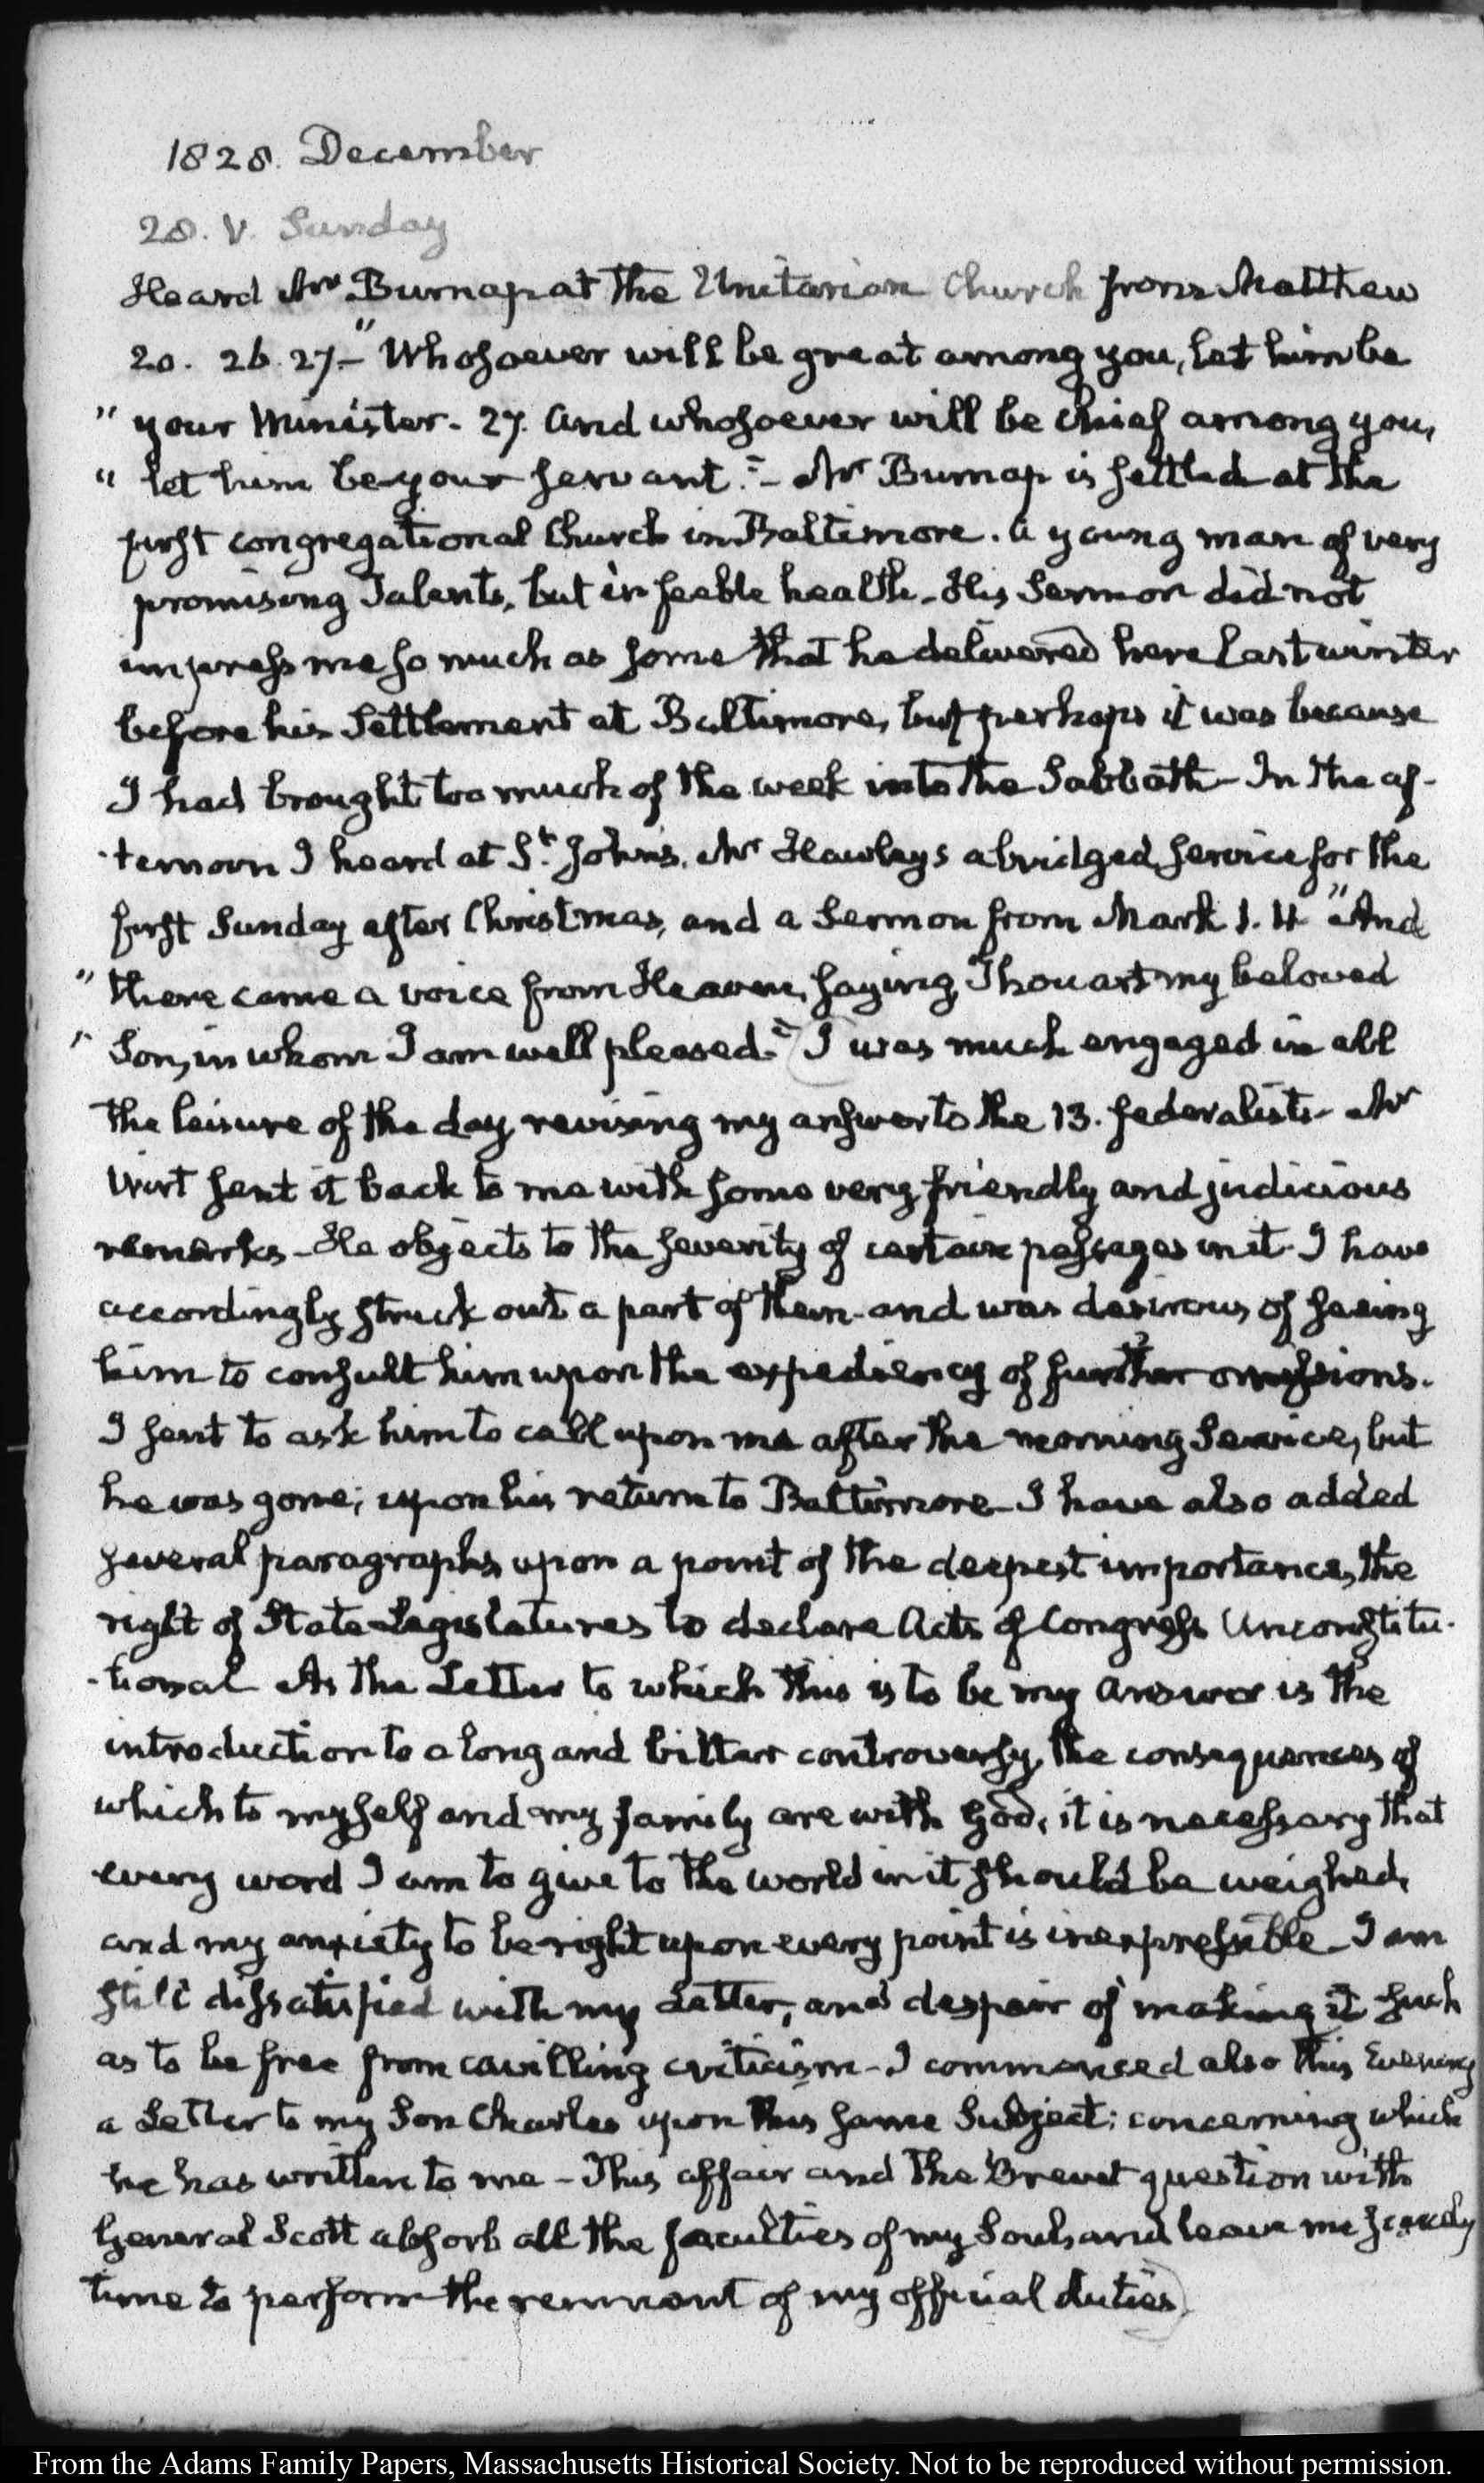 1828. December
28. V. Sunday
Heard Mr Burnap at the Unitarian Church from Matthew
20. 26. 27.— "Whosoever will be great among you, let him be
" your Minister. 27. And whosoever will be chief among you,
" let him be your servant."— Mr Burnap is settled at the
first congregational Church in Baltimore. A young man of very
promising Talents, but in feeble health. His Sermon did not
impress me so much as some that he delivered here last winter
before his Settlement at Baltimore, but perhaps it was because
I had brought too much of the week into the Sabbath— In the af-
-ternoon I heard at St. John's, Mr Hawley's abridged service for the
first Sunday after Christmas, and a Sermon from Mark 1. 11 "And
" there came a voice from Heaven, saying, Thou art my beloved
" Son, in whom I am well pleased."— I was much engaged in all
the leisure of the day, revising my answer to the 13. federalists— Mr
Wirt sent it back to me with some very friendly and judicious
remarks— He objects to the severity of certain passages in it. I have
accordingly struck out a part of them— and was desirous of seeing
him to consult him upon the expediency of further omissions.
I sent to ask him to call upon me after the morning Service, but
he was gone; upon his return to Baltimore— I have also added
several paragraphs upon a point of the deepest importance, the
right of State Legislatures to declare Acts of Congress Unconstitu-
-tional As the Letter to which this is to be my answer is the
introduction to a long and bitter controversy, the consequences of
which to myself and my family are with God, it is necessary that
every word I am to give to the world in it should be weighed,
and my anxiety to be right upon every point is inexpressible— I am
still dissatisfied with my Letter, and despair of making it such
as to be free from cavilling criticism— I commenced also this Evening
a Letter to my Son Charles upon this same Subject; concerning which
he has written to me— This affair and the Brevet question with
General Scott absorb all the faculties of my Soul, and leave me scarcely
time to perform the remnant of my official duties.
From the Adams Family Papers, Massachusetts Historical Society. Not to be reproduced without permission.